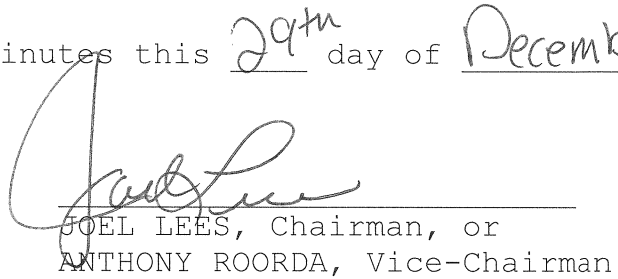 inutes this 29th day of Decemb
Joel Lees
JOEL LEES, Chairman, or
ANTHONY ROORDA, Vice-Chairman